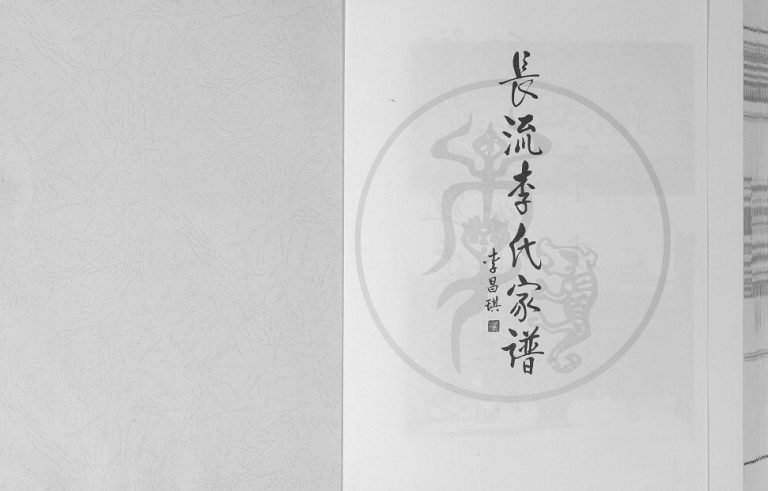 長流李氏家谱
李昌琪